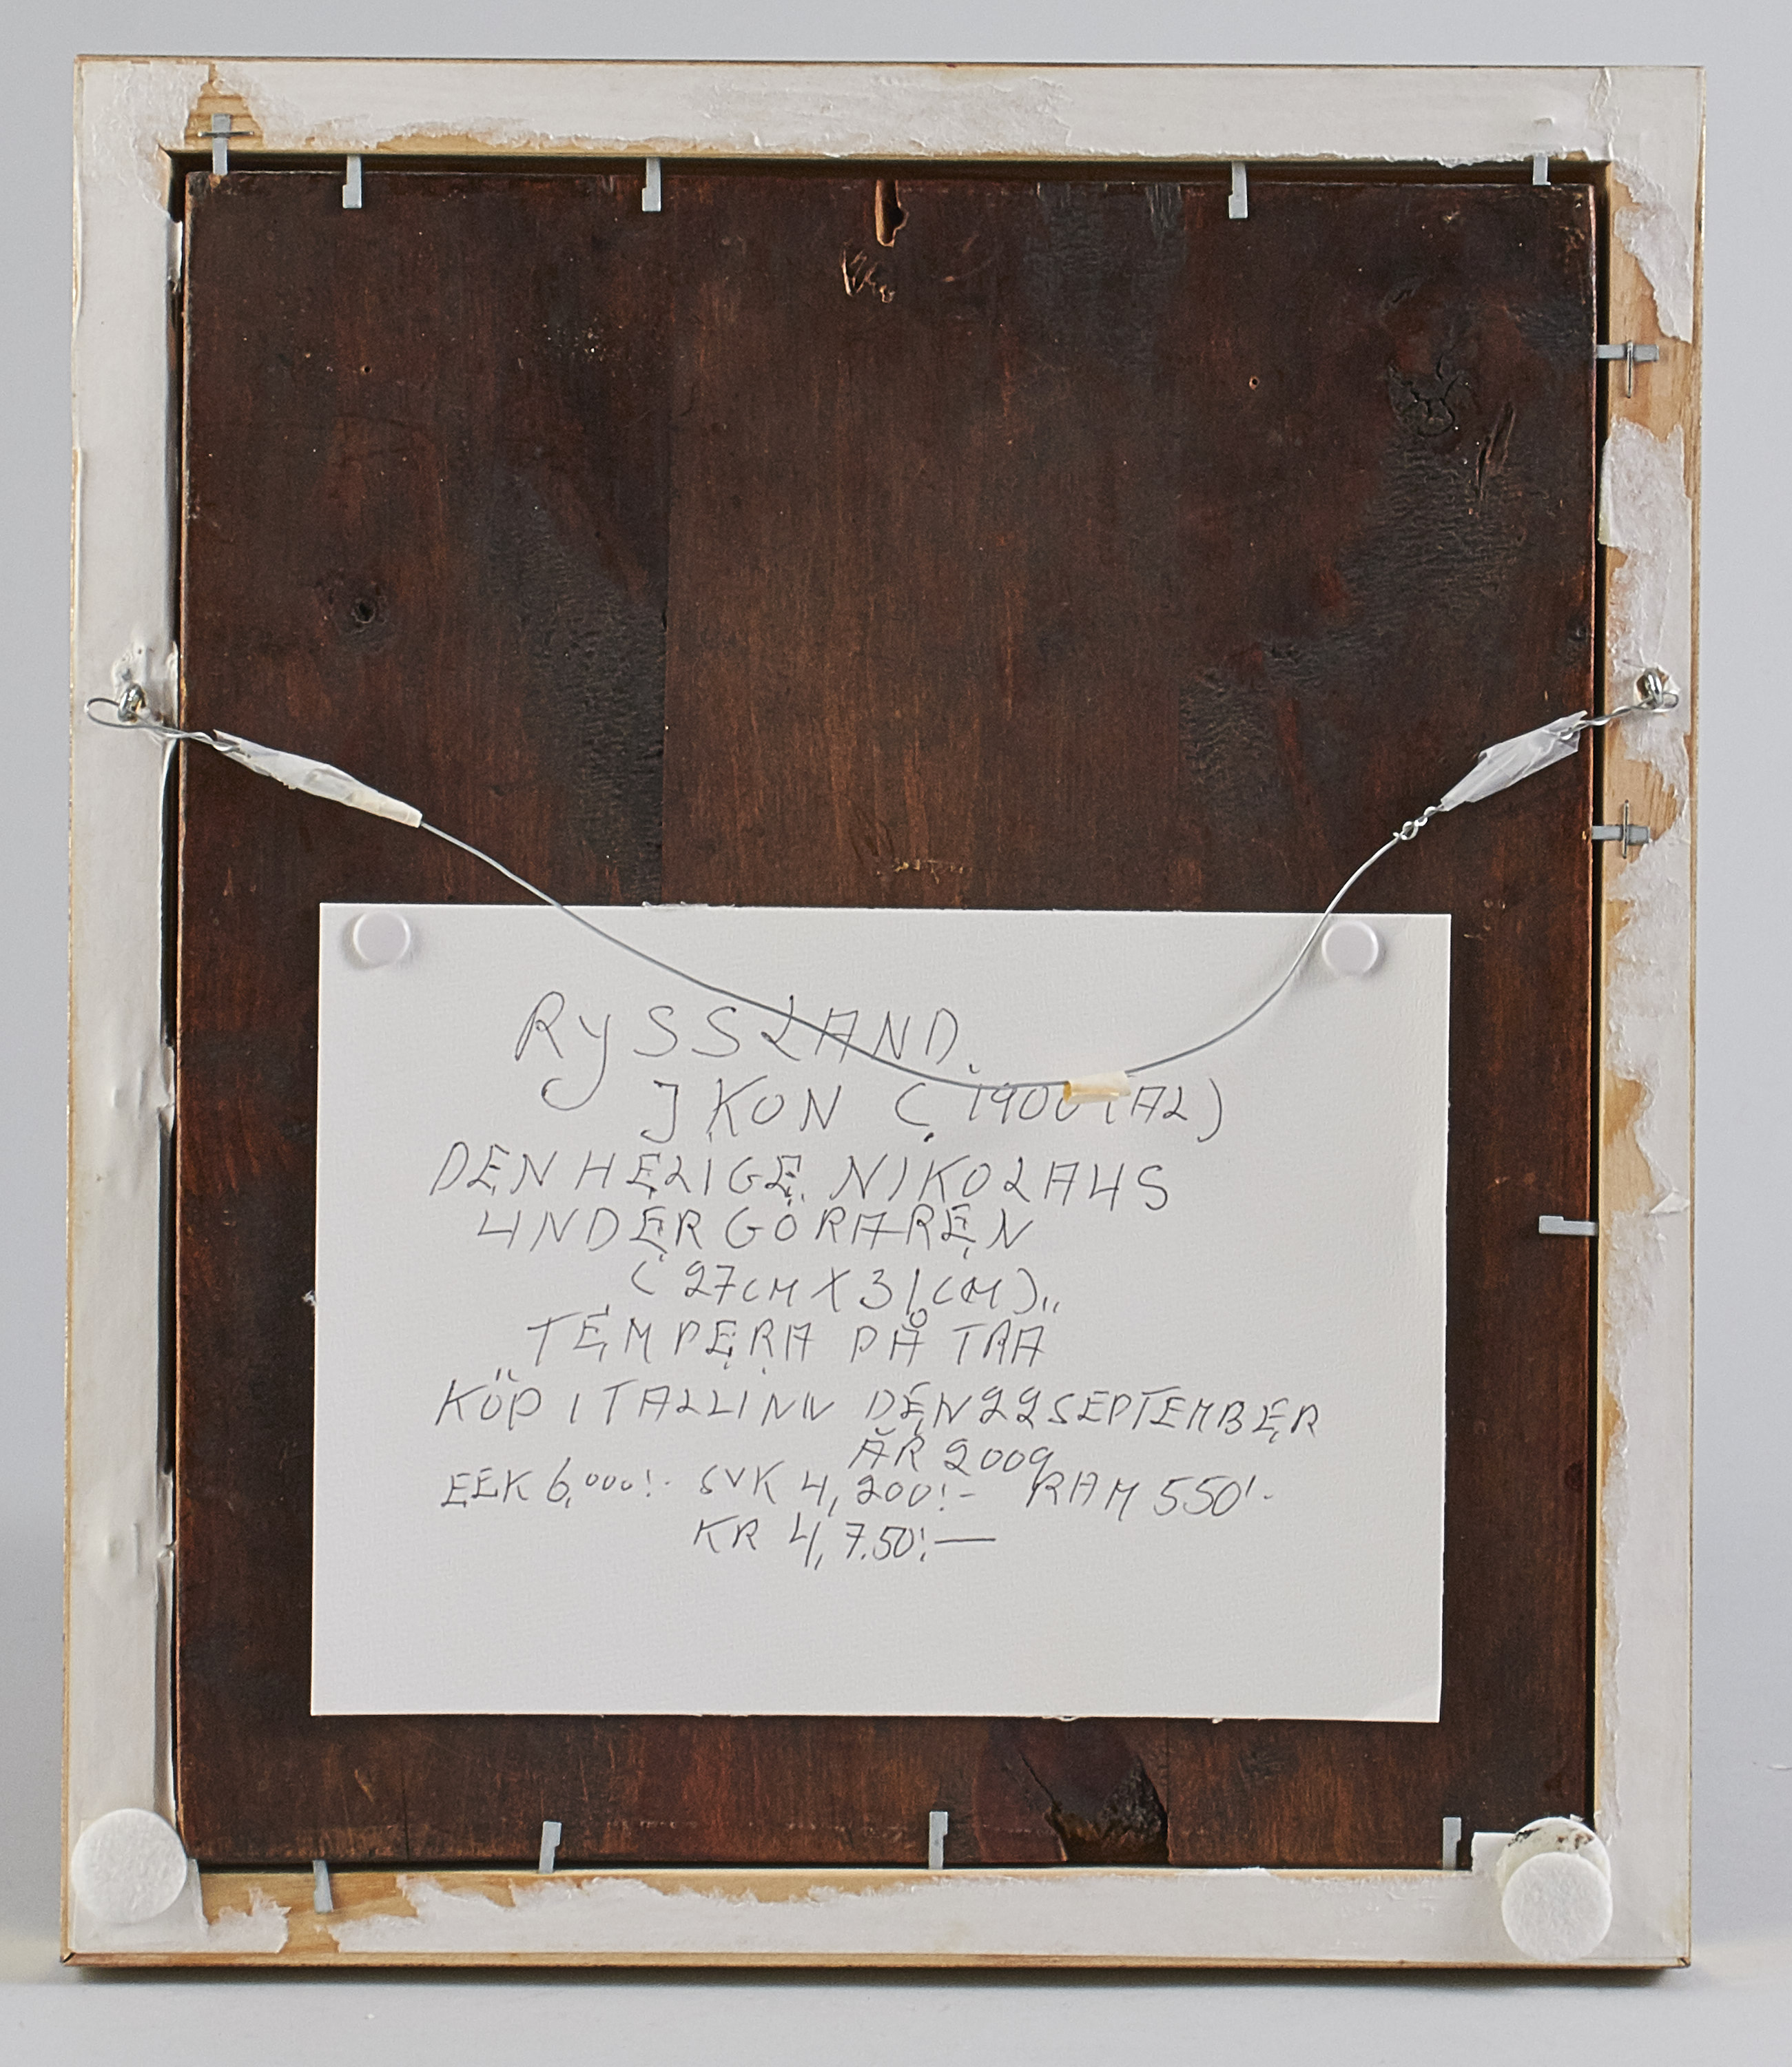 RYSSLAND.
IKON (1900 TAL)
DEN HELIGE NIKOLAUS
UNDERGÖRAREN
(27CM X 31CM)
TEMPERA PÅ TRÄ
KÖP I TALLINN DEN 22 SEPTEMBER
ÅR 2009
EEK 6,000:- SVK 4,200:- RAM 550:-
KR 4,750:—